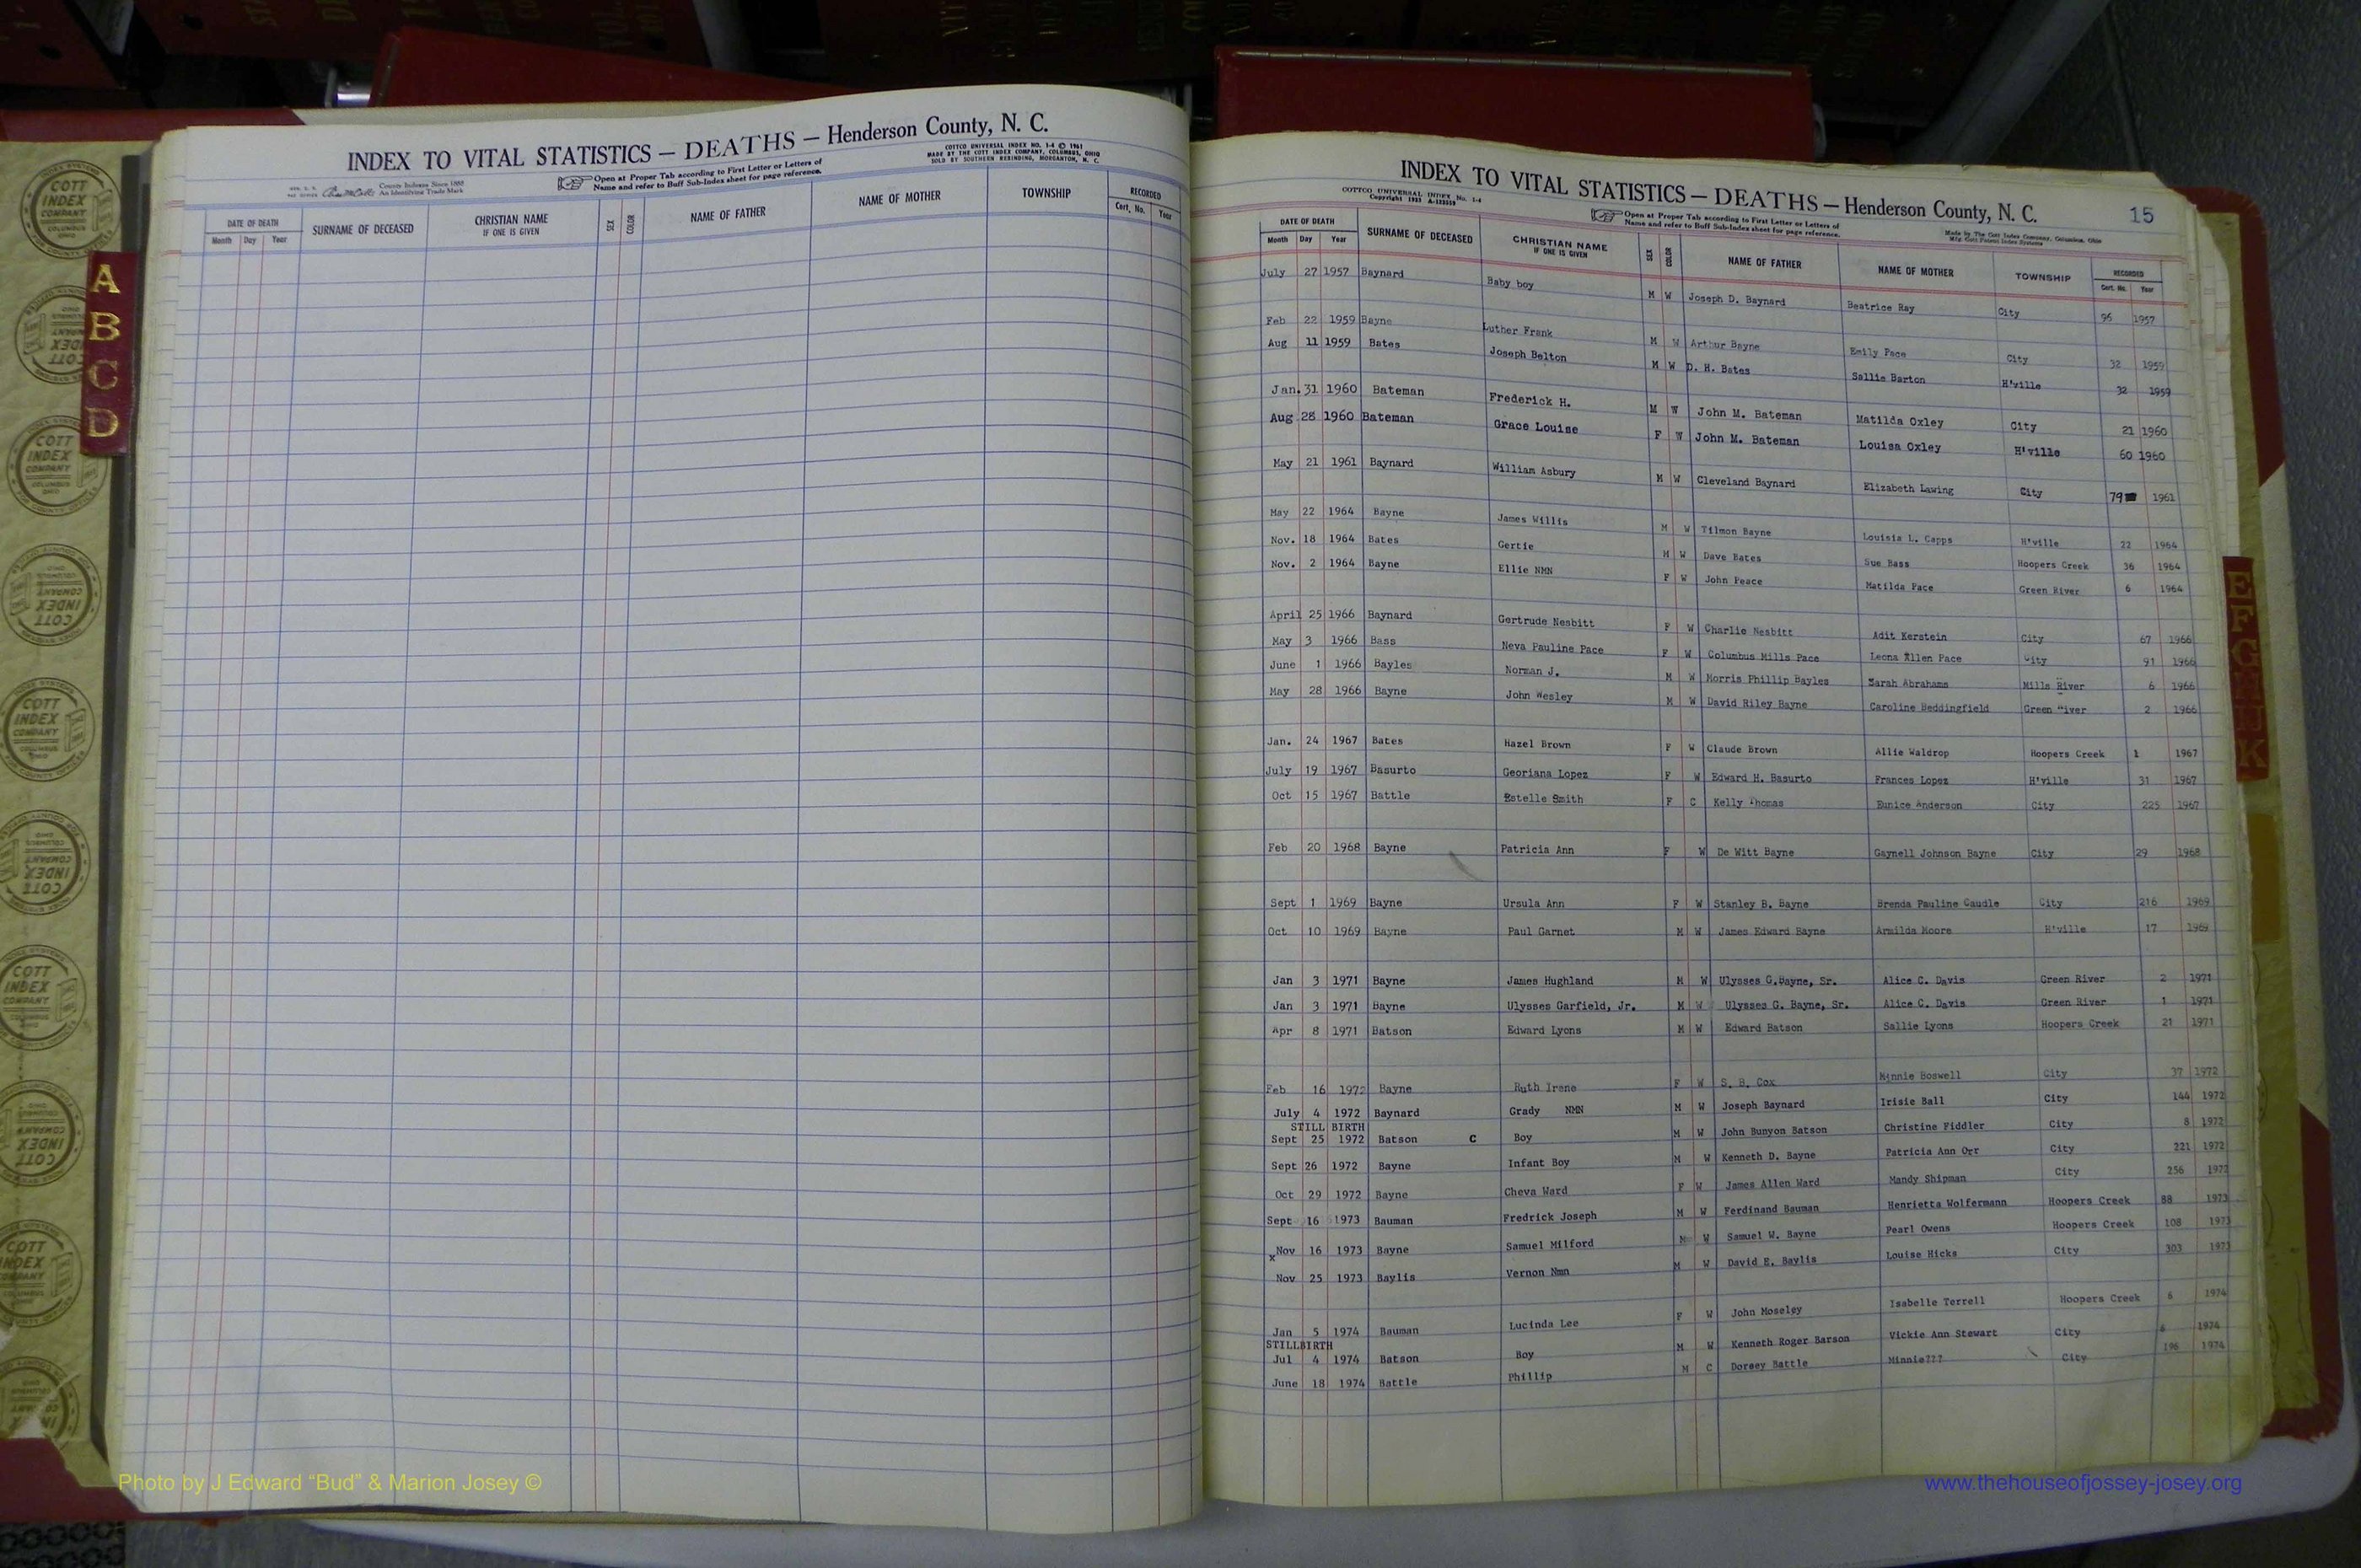 INDEX TO VITAL STATISTICS — DEATHS — Henderson County, N. C.
COTTCO UNIVERSAL INDEX NO. 1-4 © 1961
MADE BY THE COTT INDEX COMPANY, COLUMBUS, OHIO
SOLD BY SOUTHERN REBINDING, MORGANTON, N. C.
County Indexes Since 1888
An Identifying Trade Mark
Open at Proper Tab according to First Letter or Letters of
Name and refer to Buff Sub-Index sheet for page reference.
DATE OF DEATH
Month Day Year
SURNAME OF DECEASED
CHRISTIAN NAME
IF ONE IS GIVEN
SEX
COLOR
NAME OF FATHER
NAME OF MOTHER
TOWNSHIP
RECORDED
Cert. No. Year
A
B
C
D
COTT
INDEX
COMPANY
COLUMBUS
OHIO
INDEX TO VITAL STATISTICS — DEATHS — Henderson County, N. C.
15
COTTCO UNIVERSAL INDEX No. 1-4
Open at Proper Tab according to First Letter or Letters of
Name and refer to Buff Sub-Index sheet for page reference.
Made by The Cott Index Company, Columbus, Ohio
DATE OF DEATH
Month Day Year
SURNAME OF DECEASED
CHRISTIAN NAME
IF ONE IS GIVEN
SEX
COLOR
NAME OF FATHER
NAME OF MOTHER
TOWNSHIP
RECORDED
Cert. No. Year
July 27 1957 Baynard Baby boy M W Joseph D. Baynard Beatrice Ray City 96 1957
Feb 22 1959 Bayne Luther Frank M W Arthur Bayne Emily Pace City 32 1959
Aug 11 1959 Bates Joseph Belton M W D. H. Bates Sallie Barton H'ville 32 1959
Jan. 31 1960 Bateman Frederick H. M W John M. Bateman Matilda Oxley City 21 1960
Aug 28 1960 Bateman Grace Louise F W John M. Bateman Louisa Oxley H'ville 60 1960
May 21 1961 Baynard William Asbury M W Cleveland Baynard Elizabeth Lawing City 79 1961
May 22 1964 Bayne James Willis M W Tilmon Bayne Louisia L. Capps H'ville 22 1964
Nov. 18 1964 Bates Gertie M W Dave Bates Sue Bass Hoopers Creek 36 1964
Nov. 2 1964 Bayne Ellie NMN F W John Peace Matilda Pace Green River 6 1964
April 25 1966 Baynard Gertrude Nesbitt F W Charlie Nesbitt Adit Kerstein City 67 1966
May 3 1966 Bass Neva Pauline Pace F W Columbus Mills Pace Leona Allen Pace City 91 1966
June 1 1966 Bayles Norman J. M W Morris Phillip Bayles Sarah Abrahams Mills River 6 1966
May 28 1966 Bayne John Wesley M W David Riley Bayne Caroline Beddingfield Green iver 2 1966
Jan. 24 1967 Bates Hazel Brown F W Claude Brown Allie Waldrop Hoopers Creek 1 1967
July 19 1967 Basurto Georiana Lopez F W Edward H. Basurto Frances Lopez H'ville 31 1967
Oct 15 1967 Battle Estelle Smith F C Kelly Thomas Eunice Anderson City 225 1967
Feb 20 1968 Bayne Patricia Ann F W De Witt Bayne Gaynell Johnson Bayne City 29 1968
Sept 1 1969 Bayne Ursula Ann F W Stanley B. Bayne Brenda Pauline Caudle City 216 1969
Oct 10 1969 Bayne Paul Garnet M W James Edward Bayne Armilda Moore H'ville 17 1969
Jan 3 1971 Bayne James Hughland M W Ulysses G.Bayne, Sr. Alice C. Davis Green River 2 1971
Jan 3 1971 Bayne Ulysses Garfield, Jr. M W Ulysses G. Bayne, Sr. Alice C. Davis Green River 1 1971
Apr 8 1971 Batson Edward Lyons M W Edward Batson Sallie Lyons Hoopers Creek 21 1971
Feb 16 1972 Bayne Ruth Irene F W S. B. Cox Minnie Boswell City 37 1972
July 4 1972 Baynard Grady NMN M W Joseph Baynard Irisie Ball City 144 1972
STILL BIRTH
Sept 25 1972 Batson C Boy M W John Bunyon Batson Christine Fiddler City 8 1972
Sept 26 1972 Bayne Infant Boy M W Kenneth D. Bayne Patricia Ann Orr City 221 1972
Oct 29 1972 Bayne Cheva Ward F W James Allen Ward Mandy Shipman City 256 1972
Sept 16 1973 Bauman Fredrick Joseph M W Ferdinand Bauman Henrietta Wolfermann Hoopers Creek 88 1973
x Nov 16 1973 Bayne Samuel Milford M W Samuel W. Bayne Pearl Owens Hoopers Creek 108 1973
Nov 25 1973 Baylis Vernon Nmn M W David E. Baylis Louise Hicks City 303 1973
Jan 5 1974 Bauman Lucinda Lee F W John Moseley Isabelle Terrell Hoopers Creek 6 1974
STILLBIRTH
Jul 4 1974 Batson Boy M W Kenneth Roger Barson Vickie Ann Stewart City 1974
June 18 1974 Battle Phillip M C Dorsey Battle Minnie??? City 196 1974
Photo by J Edward “Bud” & Marion Josey ©
www.thehouseofjossey-josey.org